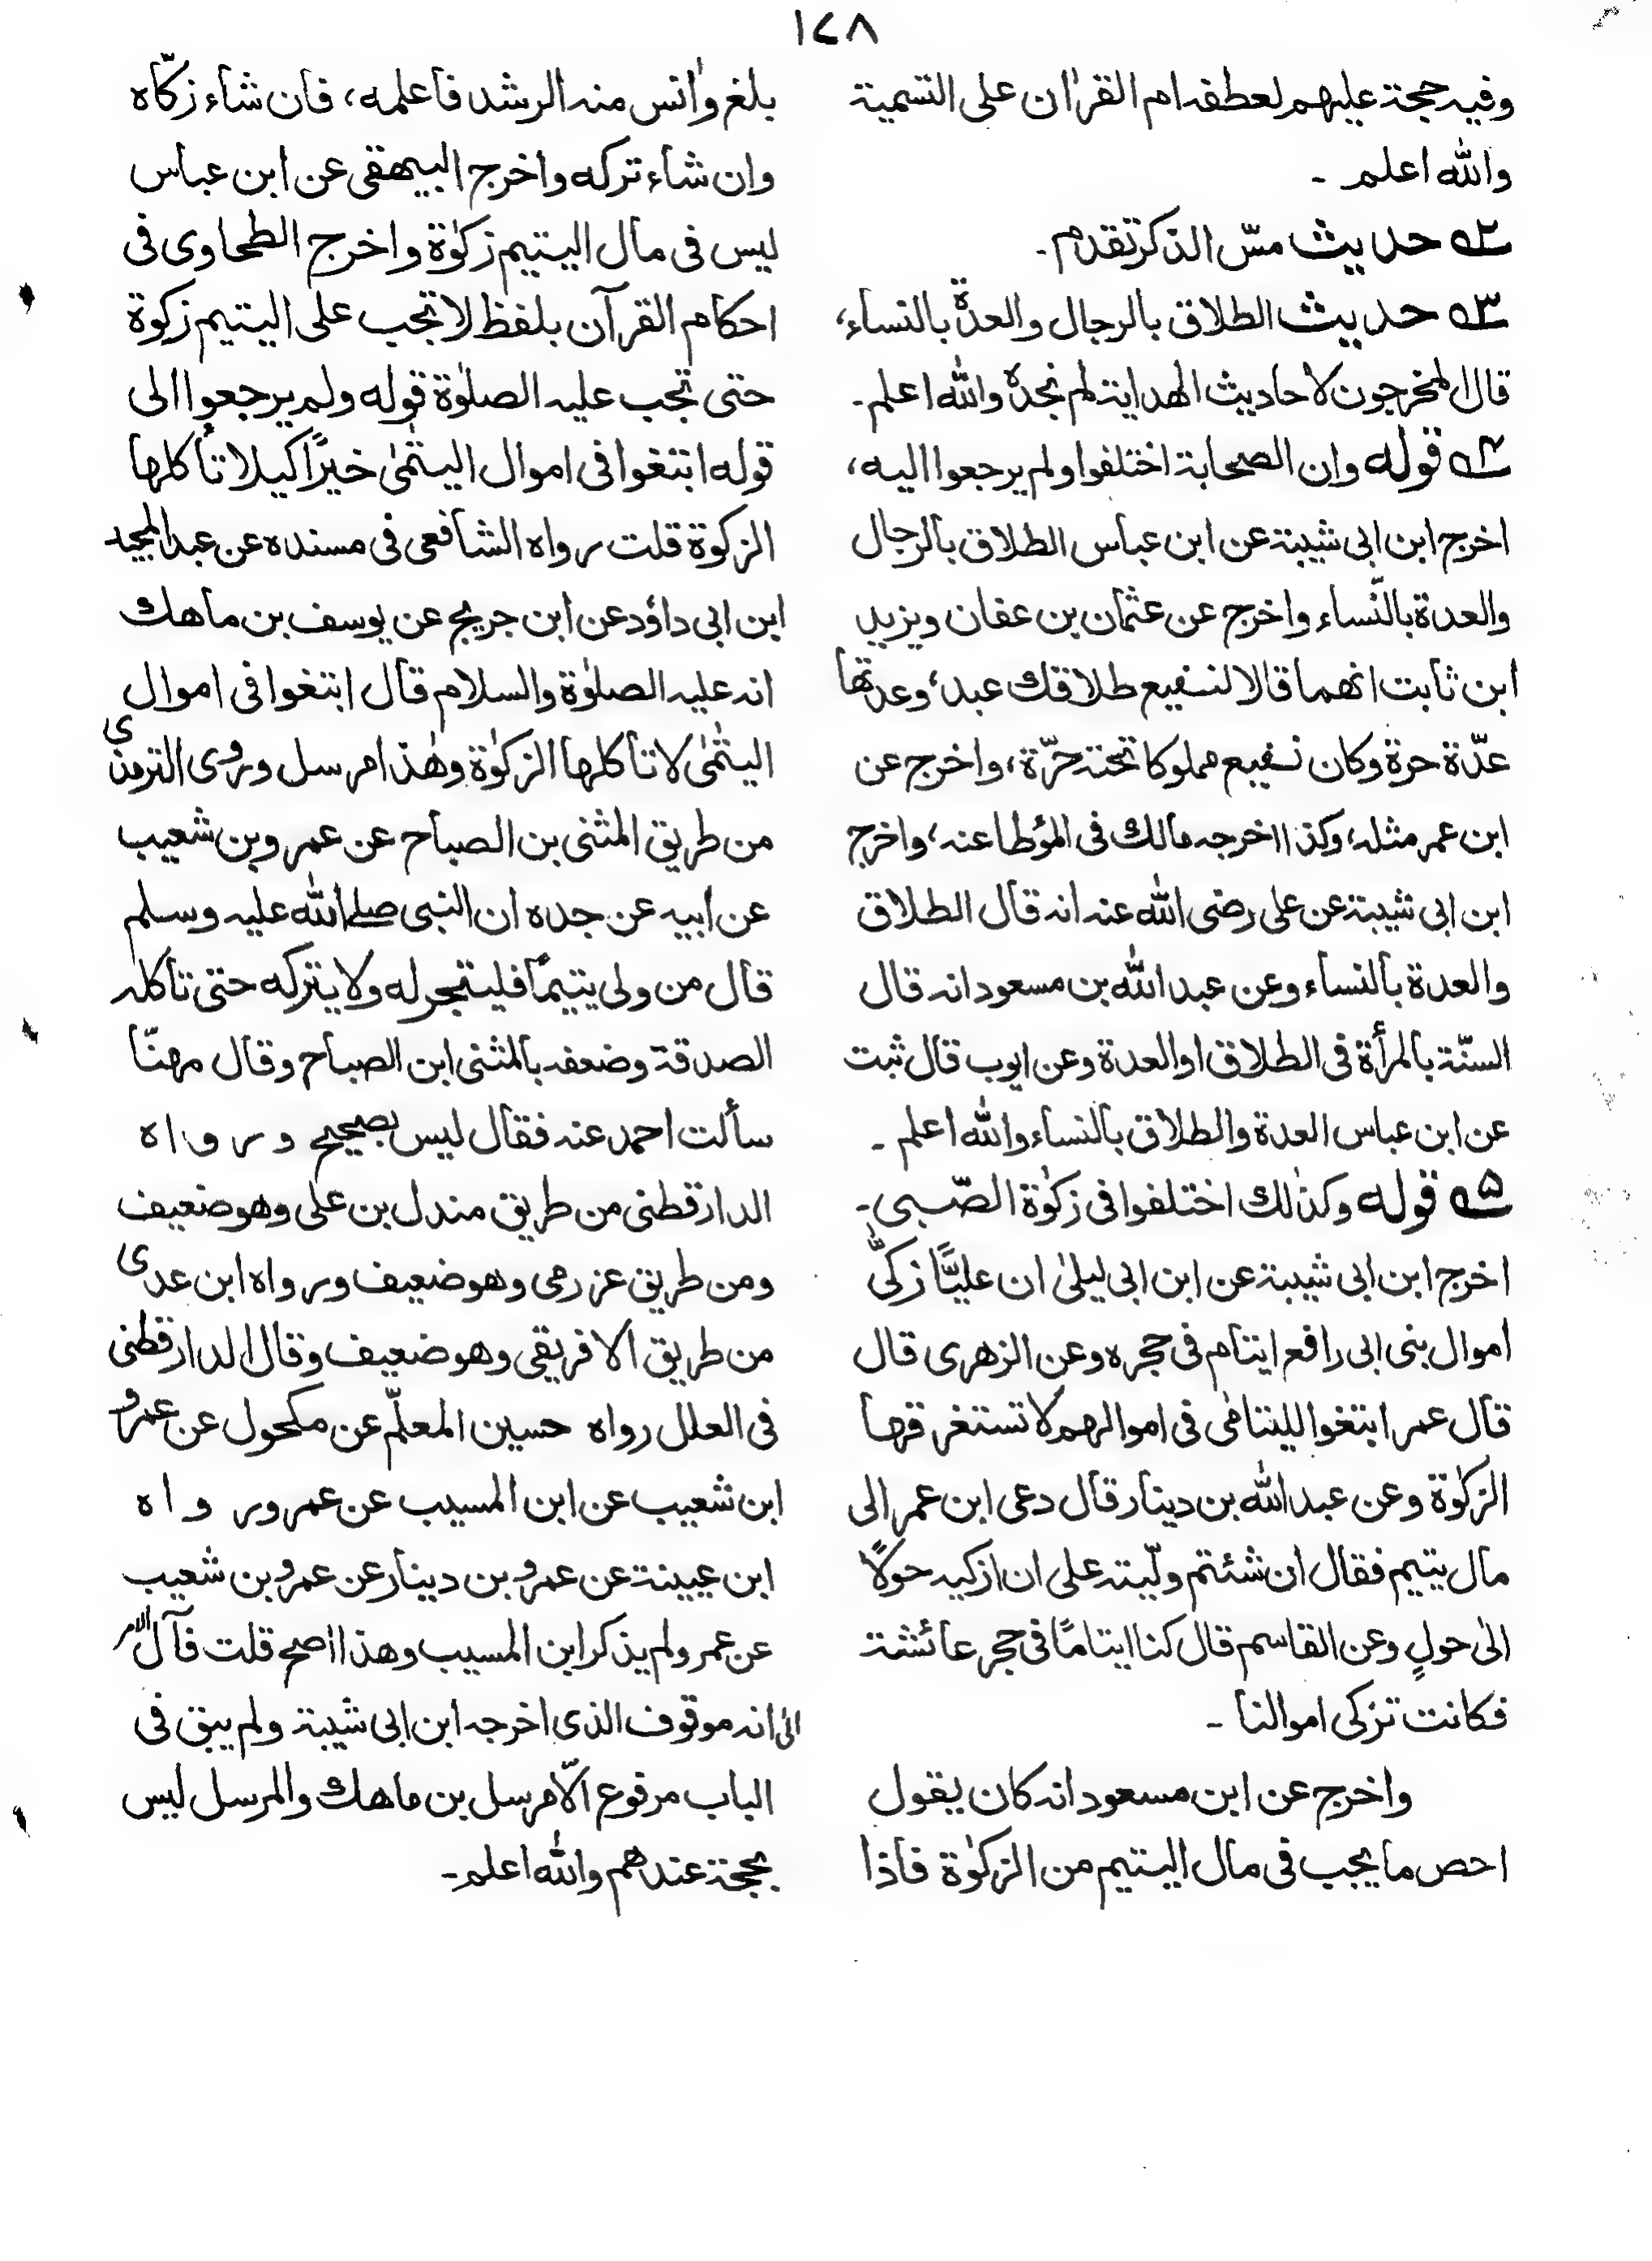 ١٤٨
وفيه حجة عليهم لعطفه ام القراٰن على التسمية
والله اعلم ۔
۲؎ حديث مسّ الذكر تقدم ۔
۳؎ حديث الطلاق بالرجال والعدة بالنساء،
قال المخرجون لاحاديث الهداية لم نجده والله اعلم ۔
۴؎ قوله وان الصحابة اختلفوا ولم يرجعوا اليه،
اخرج ابن ابى شيبة عن ابن عباس الطلاق بالرجال
والعدة بالنّساء واخرج عن عثمان بن عفان ويزيد
ابن ثابت انهما قالا لنفيع طلاقك عبد، وعدتها
عدّة حرة وكان نفيع مملوكا تحته حرّة، واخرج عن
ابن عمر مثله، وكذا اخرجه مالك فى المؤطا عنه، واخرج
ابن ابى شيبة عن على رضى الله عنه انه قال الطلاق
والعدة بالنساء وعن عبد الله بن مسعود انه قال
السنّة بالمرأة فى الطلاق او العدة وعن ايوب قال ثبت
عن ابن عباس العدة والطلاق بالنساء والله اعلم ۔
۵؎ قوله وكذٰلك اختلفوا فى زكوٰة الصّبى ۔
اخرج ابن ابى شيبة عن ابن ابى ليلىٰ ان عليًّا زكّىٰ
اموال بنى ابى رافع ايتام فى حجره وعن الزهرى قال
قال عمر ابتغوا لليتامٰى فى اموالهم لا تستغرقها
الزكوٰة وعن عبد الله بن دينار قال دعى ابن عمر الى
مال يتيم فقال ان شئتم ولّيته على ان ازكيه حولًا
الىٰ حولٍ وعن القاسم قال كنا ايتامًا فى حجر عائشة
فكانت تزكى اموالنا ۔
واخرج عن ابن مسعود انه كان يقول
احص ما يجب فى مال اليتيم من الزكوٰة فاذا
بلغ واٰنس منه الرشد فاعلمه، فان شاء زكّاه
وان شاء تركه واخرج البيهقى عن ابن عباس
ليس فى مال اليتيم زكوٰة واخرج الطحاوى فى
احكام القرآن بلفظ لا تجب على اليتيم زكوة
حتى تجب عليه الصلوٰة قوله ولم يرجعوا الى
قوله ابتغوا فى اموال اليتٰمىٰ خيرًا كيلا تأكلها
الزكوة قلت رواه الشافعى فى مسنده عن عبد المجيد
ابن ابى داؤد عن ابن جريج عن يوسف بن ماهك
انه عليه الصلوٰة والسلام قال ابتغوا فى اموال
اليتٰمىٰ لا تاكلها الزكوٰة وهٰذا مرسل وروى الترمذى
من طريق المثنى بن الصباح عن عمرو بن شعيب
عن ابيه عن جده ان النبى صلے الله عليه وسلم
قال من ولى يتيمًا فليتجر له ولا يتركه حتى تاكله
الصدقة وضعفه بالمثنى ابن الصباح وقال مهنّا
سألت احمد عنه فقال ليس بصحيح ورواه
الدارقطنى من طريق مندل بن على وهو ضعيف
ومن طريق عزرمى وهو ضعيف ورواه ابن عدى
من طريق الافريقى وهو ضعيف وقال الدارقطنى
فى العلل رواه حسين المعلّم عن مكحول عن عمرو
ابن شعيب عن ابن المسيب عن عمر ورواه
ابن عيينة عن عمرو بن دينار عن عمرو بن شعيب
عن عمر ولم يذكر ابن المسيب وهذا اصح قلت فآل الامر
الىٰ انه موقوف الذى اخرجه ابن ابى شيبة ولم يبق فى
الباب مرفوع الّا مرسل بن ماهك والمرسل ليس
بحجة عندهم والله اعلم ۔